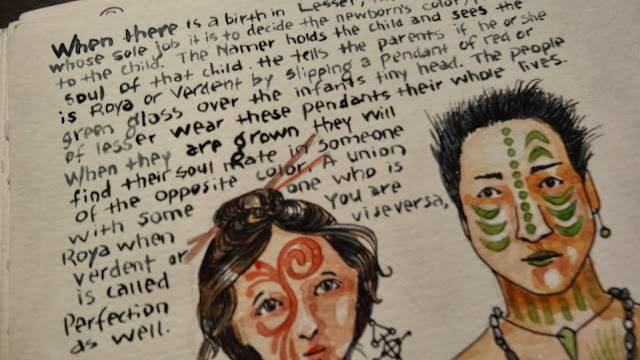 When there is a birth in Lesser,
whose sole job it is to decide the newborn's color,
to the child. The Namer holds the child and sees the
soul of that child. He tells the parents if he or she
is Roya or Verdent by slipping a pendant of red or
green glass over the infants tiny head. The people
of lesser wear these pendants their whole lives.
When they are grown they will
find their soul mate in someone
of the opposite color. A union
with some one who is
Roya when You are
verdent or viseversa,
is called
Perfection
as well.